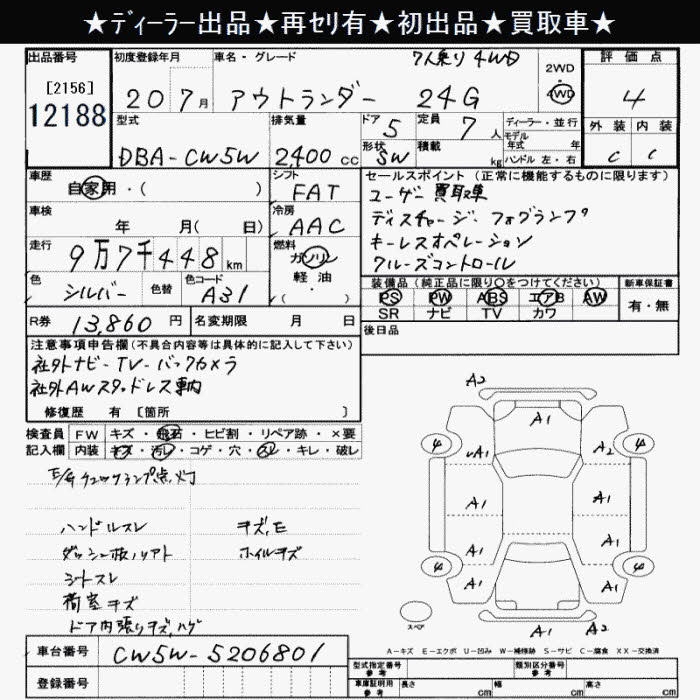 ★ディーラー出品★再セリ有★初出品★買取車★
出品番号 初度登録年月 車名・グレード 7人乗り 4WD 2WD・4WD 評価点
[2156]
12188
20 7月 アウトランダー 24G 4
型式 排気量 ドア 5 定員 7人 ディーラー・並行 外装 内装
モデル年式 年
DBA-CW5W 2400cc 形状 SW 積載 kg ハンドル 左・右 C C
車歴 自家用・( ) シフト FAT セールスポイント (正常に機能するものに限ります)
ユーザー買取車
車検 年 月( 日) 冷房 AAC
ディスチャージ・フォグランプ
キーレスオペレーション
走行 9万7千448km 燃料 ガソリン 軽油 ・( )
クルーズコントロール
色 シルバー 色替 色コード A31
装備品 (純正品に限り○をつけてください) 新車保証書
PS PW ABS エアB AW 有・無
SR ナビ TV カワ
R券 13,860円 名変期限 月 日 後日品
注意事項申告欄 (不具合内容等は具体的に記入して下さい)
社外ナビ-TV-バックカメラ
社外AWスタッドレス車内
修復歴 有 [箇所 ]
検査員 FW キズ・飛石・ヒビ割・リペア跡・×要
記入欄 内装 キズ・汚レ・コゲ・穴・スレ・キレ・破レ
チェックランプ点灯
ハンドルスレ キズ,E
ダッシュ板ノリアト ホイルキズ
シートスレ
荷室キズ
ドア内張りキズ,ハゲ
A2
A1
A1 A2
4 4
A1 A1
A1 A1
4 4
A1 A1
スペア A1 A2
A-キズ E-エクボ U-凹み W-補修跡 S-サビ C-腐食 XX-交換済
車台番号 CW5W-5206801
型式指定番号 参考 類別区分番号 参考
登録番号 車庫証明用 参考 長さ cm 幅 cm 高さ cm